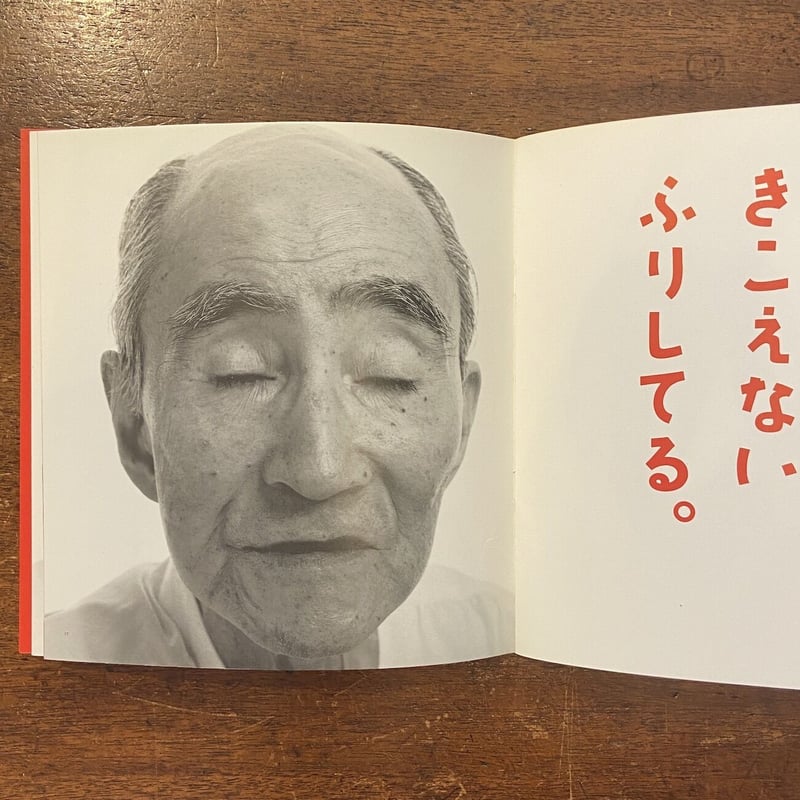 きこえない
ふりしてる。